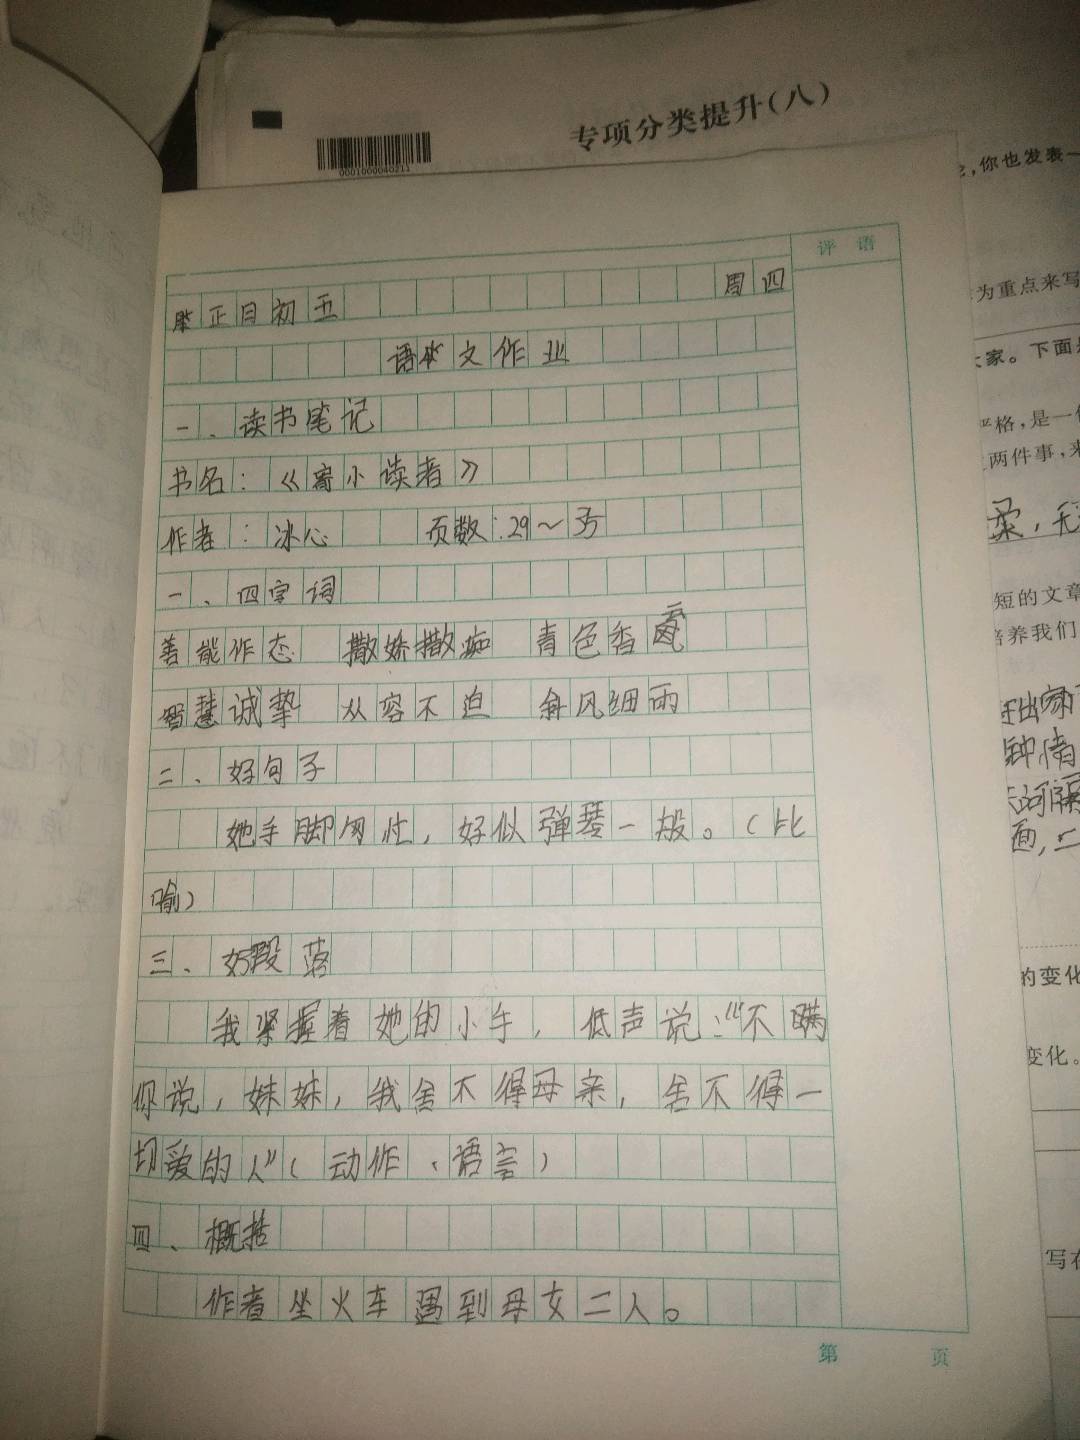 专项分类提升(八)
0001000040211
,你也发表一
为重点来写
家。下面是
严格,是一
两件事,来
柔,无
短的文章
培养我们
钟情
画,二
的变化
变化。
写在
评语
正月初五 周四
语文作业
一、读书笔记
书名:《寄小读者》
作者:冰心 页数:29~
一、四字词
善能作态 撒娇撒痴 青色香
智慧诚挚 从容不迫 斜风细雨
二、好句子
她手脚匆忙,好似弹琴一般。(比
喻)
三、好段落
我紧握着她的小手,低声说:“不瞒
你说,妹妹,我舍不得母亲,舍不得一
切爱的人”(动作、语言)
四、概括
作者坐火车遇到母女二人。
第 页